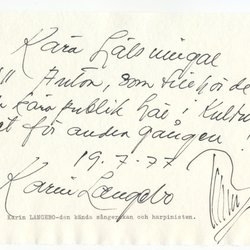 Kära Hälsningar
till Anton, som tillhörde
kära publik här i Kultur
et för andra gången!
19.7.77
Karin Langebo
Karin LANGEBO-den kända sångerskan och harpinisten.